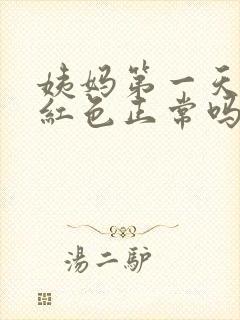 姨妈第一天
紅色正常吗
湯二驴